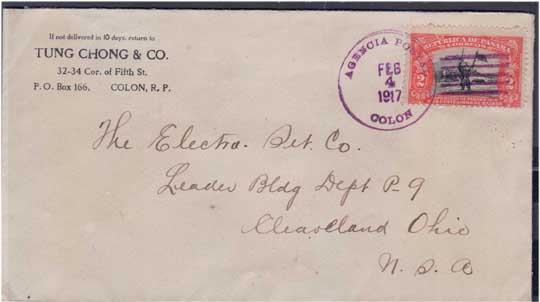 If not delivered in 10 days, return to
TUNG CHONG & CO.
32-34 Cor. of Fifth St.
P. O. Box 166, COLON, R. P.
AGENCIA PO
FEB
4
1917
COLON
REPUBLICA DE PANAMA
CORREOS
2 2
The Electra. Set. Co.
Leader Bldg Dept P-9
Cleaveland Ohio
U. S. A